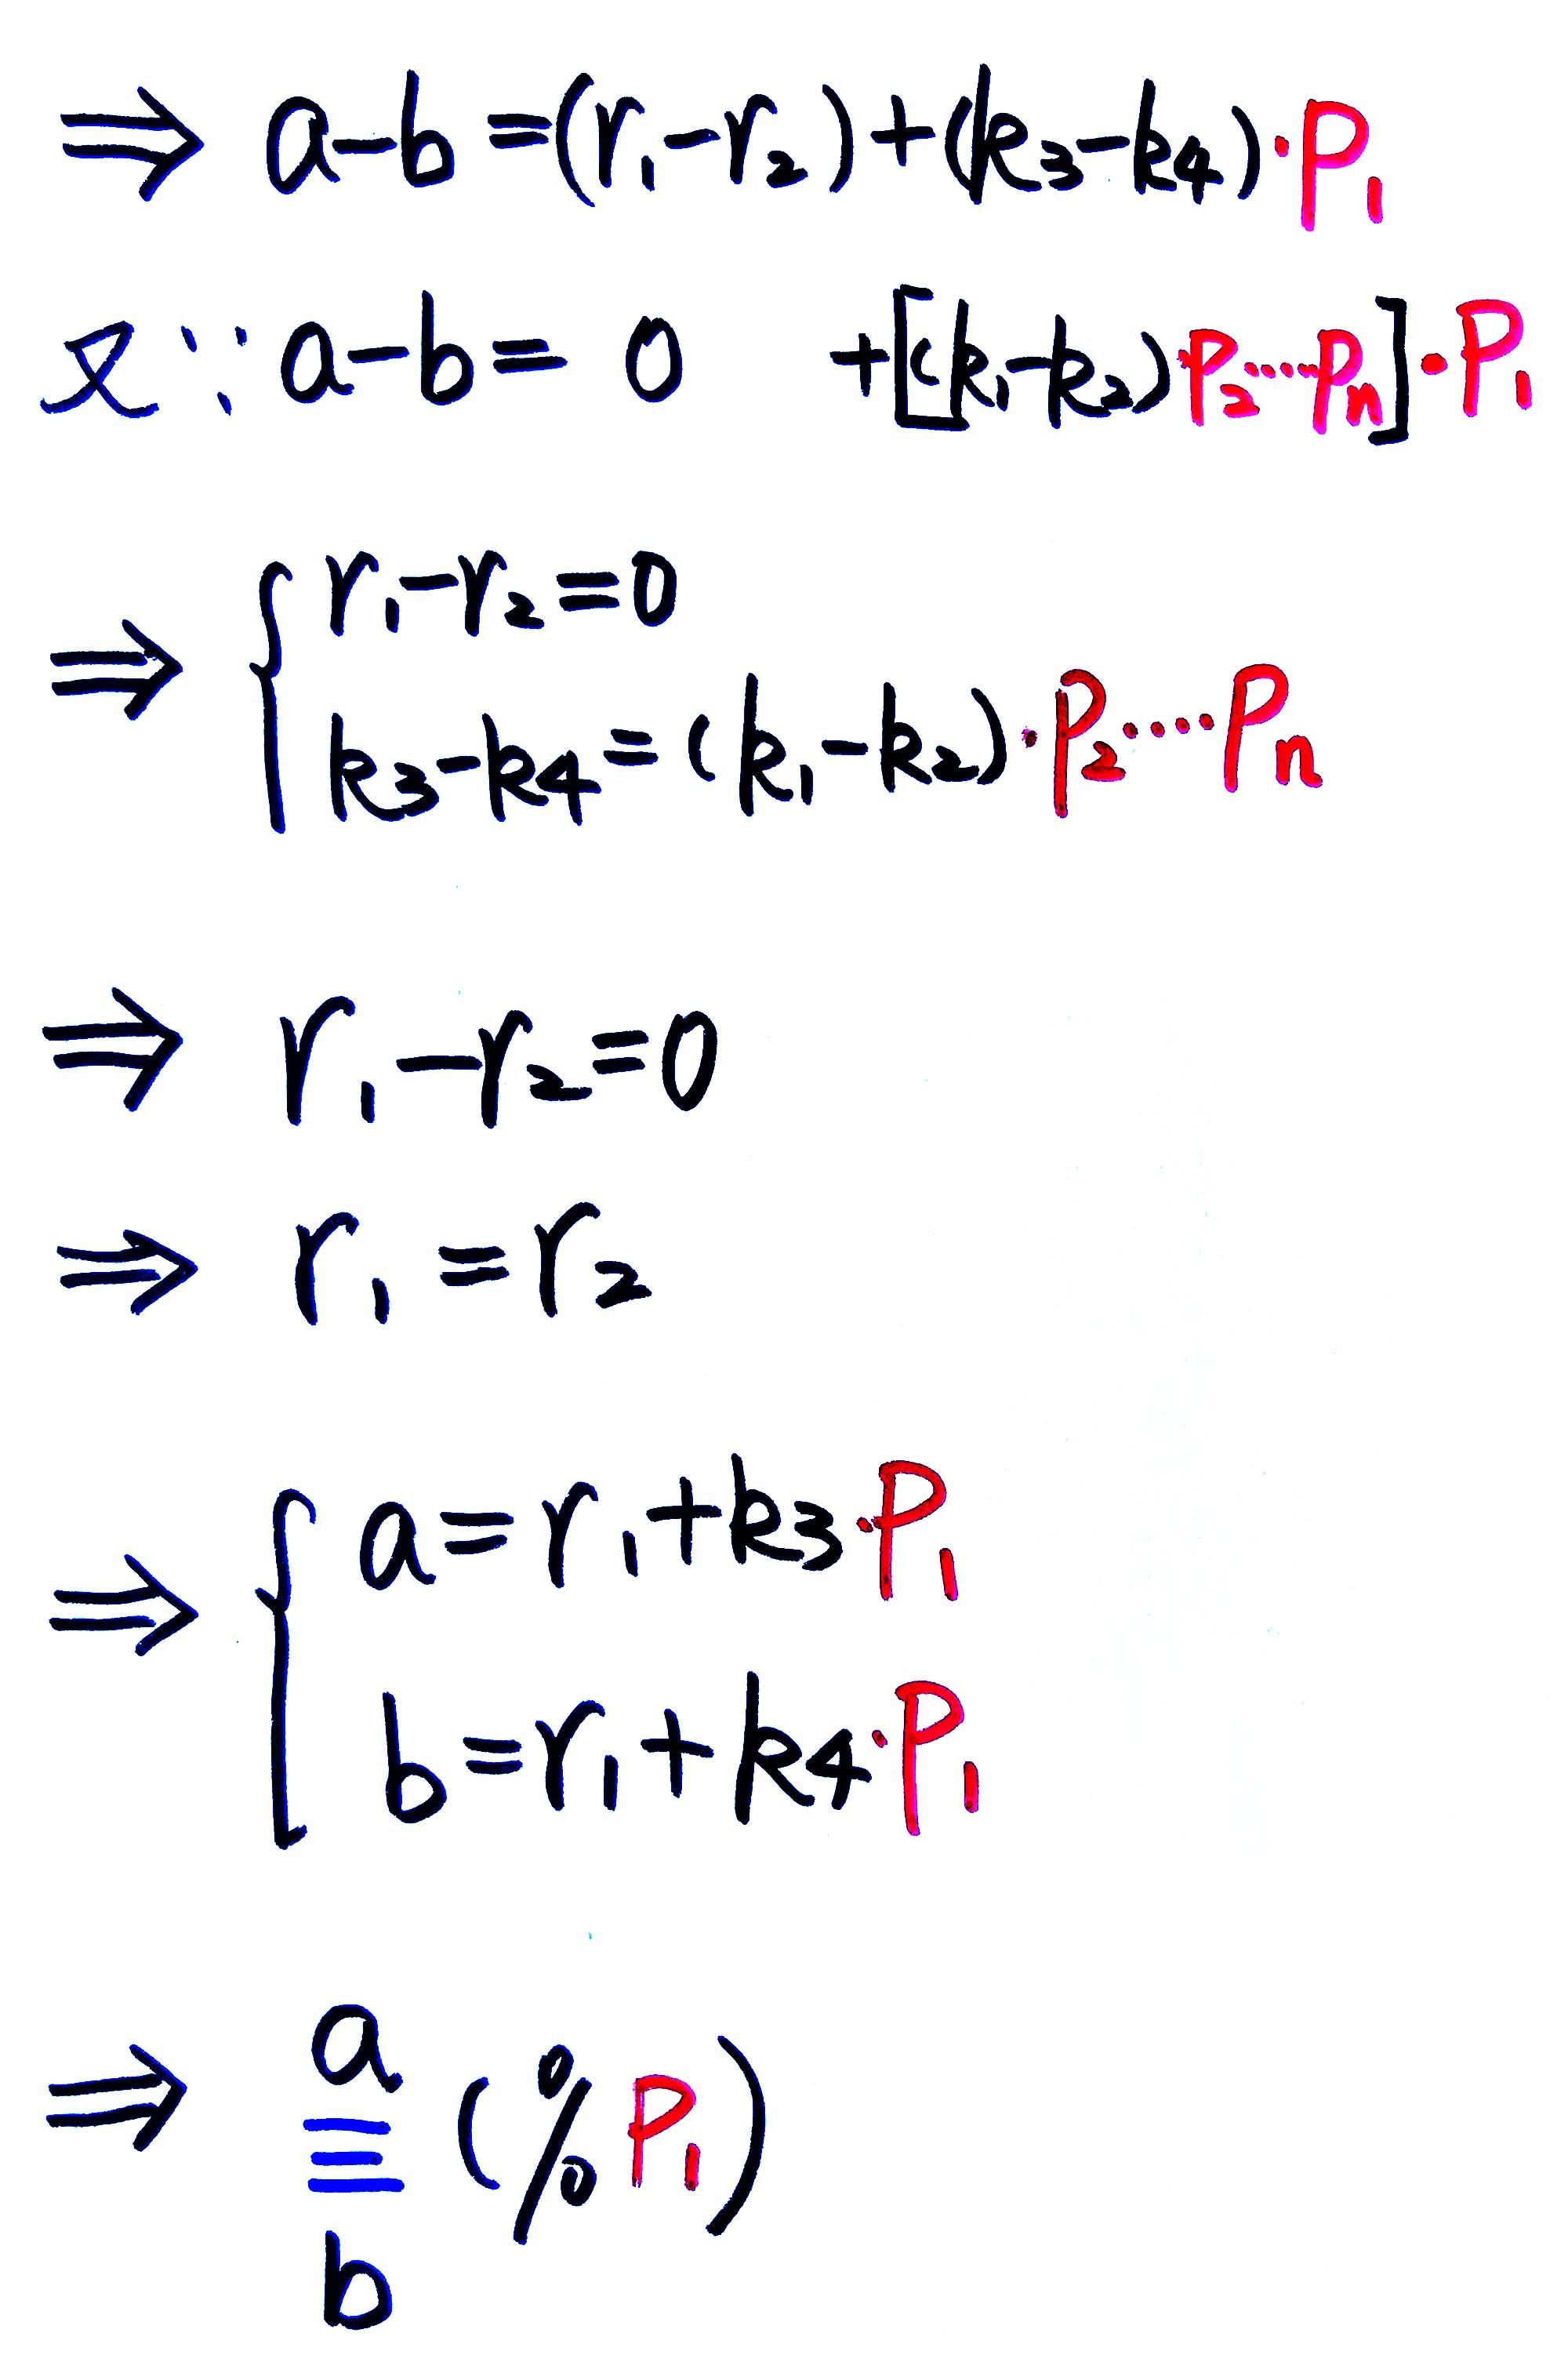 ⇒ a-b=(r₁-r₂)+(k₃-k₄)·P₁
又∵a-b= 0 +[(k₁-k₂)·P₂……Pₙ]·P₁
⇒ { r₁-r₂=0
k₃-k₄=(k₁-k₂)·P₂……Pₙ
⇒ r₁-r₂=0
⇒ r₁=r₂
⇒ { a=r₁+k₃·P₁
b=r₁+k₄·P₁
⇒ a ≡ b (%P₁)